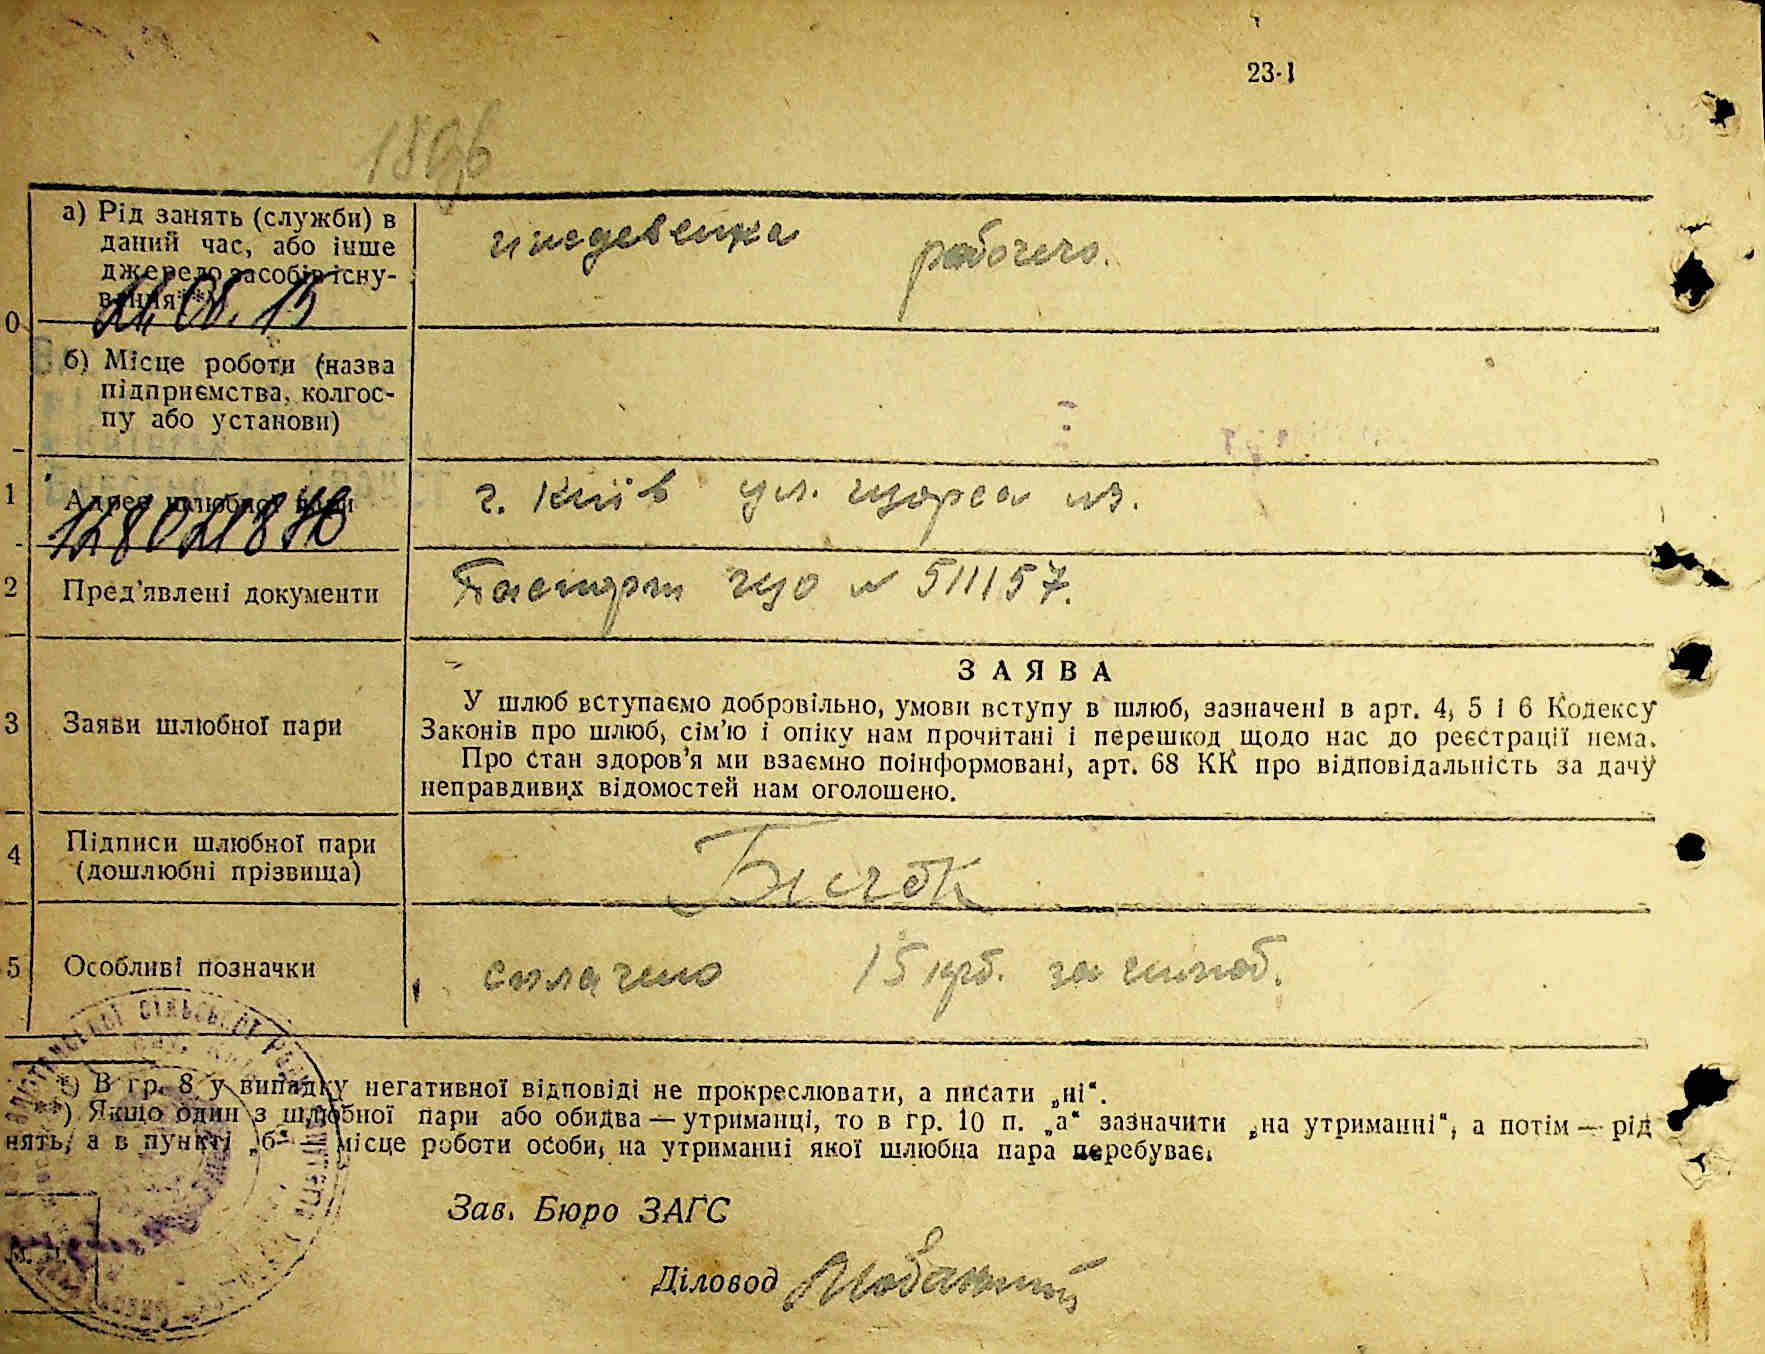 23-1
1896
а) Рід занять (служби) в
даний час, або інше
джерело засобів існу-
вання**)
иждевенка рабочего.
0
б) Місце роботи (назва
підприємства, колгос-
пу або установи)
1
Адреса шлюбної пари
г. Київ ул. щорса
1280218
2
Пред'явлені документи
Паспорт № 511157.
ЗАЯВА
У шлюб вступаємо добровільно, умови вступу в шлюб, зазначені в арт. 4, 5 і 6 Кодексу
3
Заяви шлюбної пари
Законів про шлюб, сім'ю і опіку нам прочитані і перешкод щодо нас до реєстрації нема.
Про стан здоров'я ми взаємно поінформовані, арт. 68 КК про відповідальність за дачу
неправдивих відомостей нам оголошено.
4
Підписи шлюбної пари
(дошлюбні прізвища)
Бичок
5
Особливі позначки
сплачено 15 крб. за шлюб.
*) В гр. 8 у випадку негативної відповіді не прокреслювати, а писати „ні“.
**) Якщо один з шлюбної пари або обидва — утриманці, то в гр. 10 п. „а“ зазначити „на утриманні“, а потім — рід
нять, а в пункті „б“ — місце роботи особи, на утриманні якої шлюбна пара перебуває.
Зав. Бюро ЗАГС
Діловод
М. П.